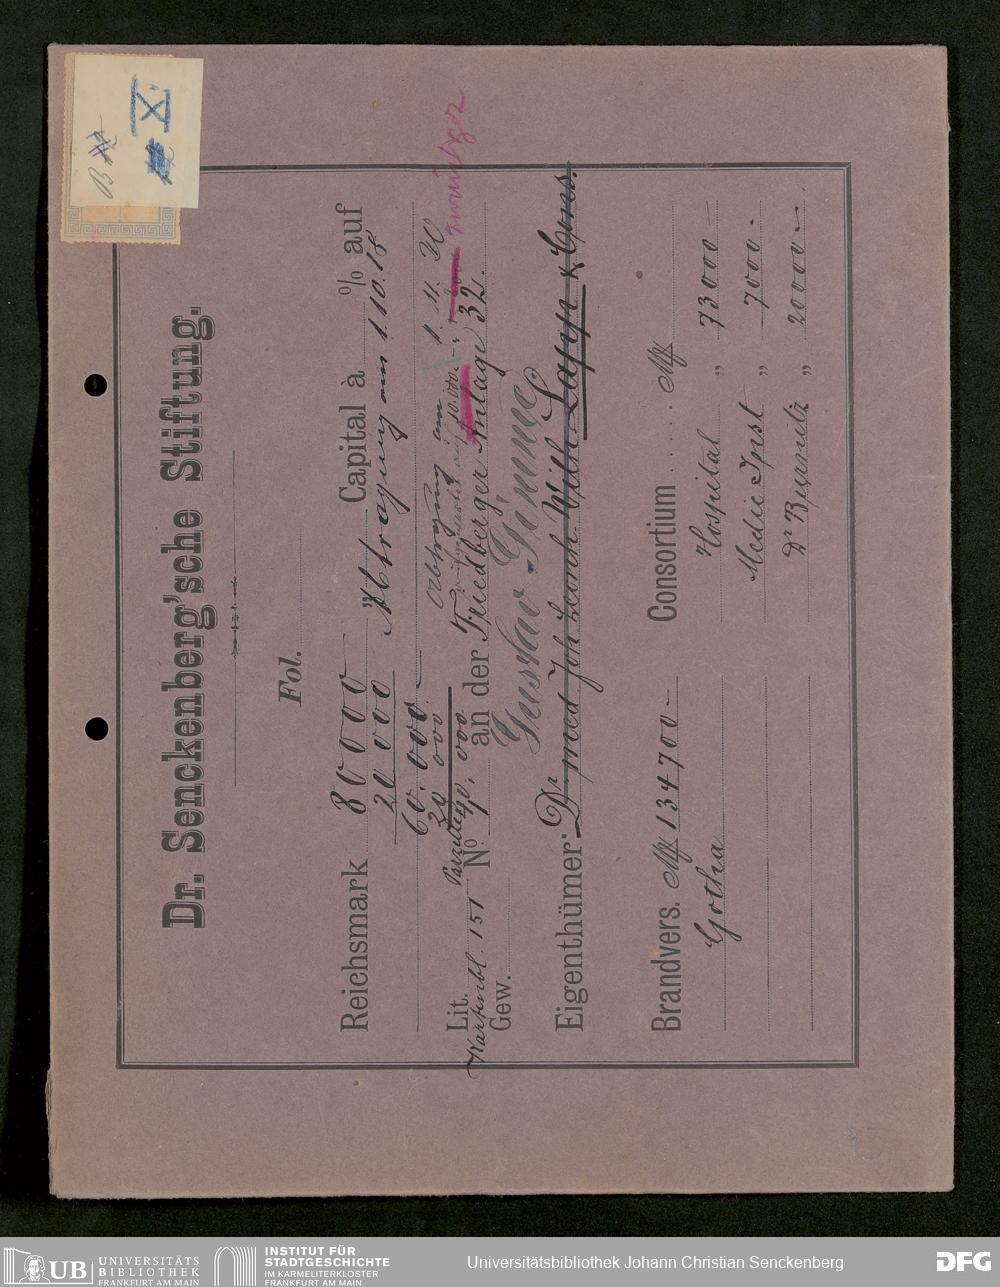 B
X.
Dr. Senckenberg'sche Stiftung.
Fol.
Reichsmark 80000 „ Capital à % auf
20 000 Abtragung am 1.10.18
60.000 Abtragung am 1. 11. 20
20 000
Lit. Parzelle 40.000
No an der Friedberger Anlage 32.
Kartenbl 151
Gew.
Gustav Gimmel
Eigenthümer: Dr med Joh Heinr Wilh Lapp & Cons.
Brandvers. M 134700 – Consortium M
Gotha Hospital „ 73000 –
Medic Inst „ 7000 -
Dr „ 20000 –
UB UNIVERSITÄTS
BIBLIOTHEK
FRANKFURT AM MAIN
INSTITUT FÜR
STADTGESCHICHTE
IM KARMELITERKLOSTER
FRANKFURT AM MAIN
Universitätsbibliothek Johann Christian Senckenberg
DFG